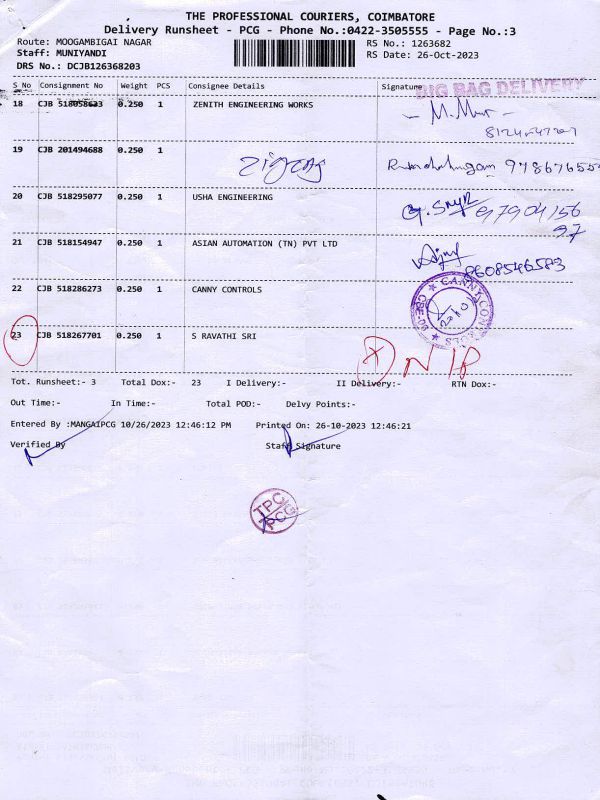 THE PROFESSIONAL COURIERS, COIMBATORE
Delivery Runsheet - PCG - Phone No.:0422-3505555 - Page No.:3
Route: MOOGAMBIGAI NAGAR RS No.: 1263682
Staff: MUNIYANDI RS Date: 26-Oct-2023
DRS No.: DCJB126368203
BIG BAG DELIVERY
S No Consignment No Weight PCS Consignee Details Signature
18 CJB 518058633 0.250 1 ZENITH ENGINEERING WORKS
19 CJB 201494688 0.250 1
20 CJB 518295077 0.250 1 USHA ENGINEERING
97904156
97
21 CJB 518154947 0.250 1 ASIAN AUTOMATION (TN) PVT LTD
8608546583
22 CJB 518286273 0.250 1 CANNY CONTROLS
CANNY CONTROLS
23 CJB 518267701 0.250 1 S RAVATHI SRI
Tot. Runsheet:- 3 Total Dox:- 23 I Delivery:- II Delivery:- RTN Dox:-
Out Time:- In Time:- Total POD:- Delvy Points:-
Entered By :MANGAIPCG 10/26/2023 12:46:12 PM Printed On: 26-10-2023 12:46:21
Verified By Staff Signature
TPC
PCG